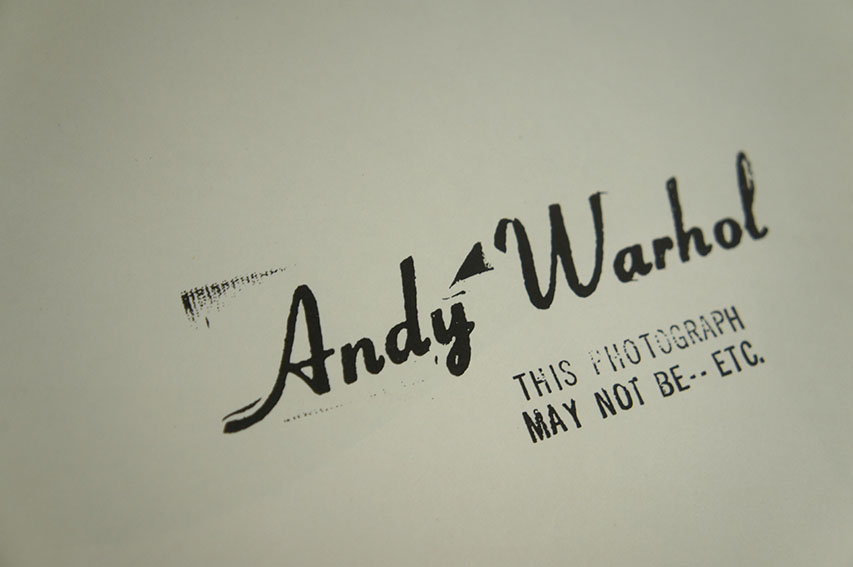 Andy Warhol
THIS PHOTOGRAPH
MAY NOT BE-- ETC.